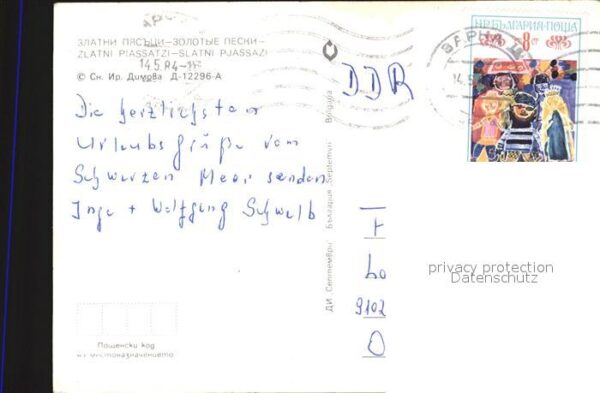 ЗЛАТНИ ПЯСЪЦИ—ЗОЛОТЫЕ ПЕСКИ—
ZLATNI PIASSATZI—SLATNI PJASSAZI
14.5.84
© Сн. Ир. Димова Д-12296-А
Die herzlichsten
Urlaubsgrüße vom
Schwarzen Meer senden
Inge + Wolfgang Schwalb
Пощенски код
на местоназначението
ДИ Септември България Septemvri Bulgaria
НР БЪЛГАРИЯ·ПОЩА
8 ст
ВАРНА
14.5
DDR
F
Lo
9102
O
privacy protection
Datenschutz